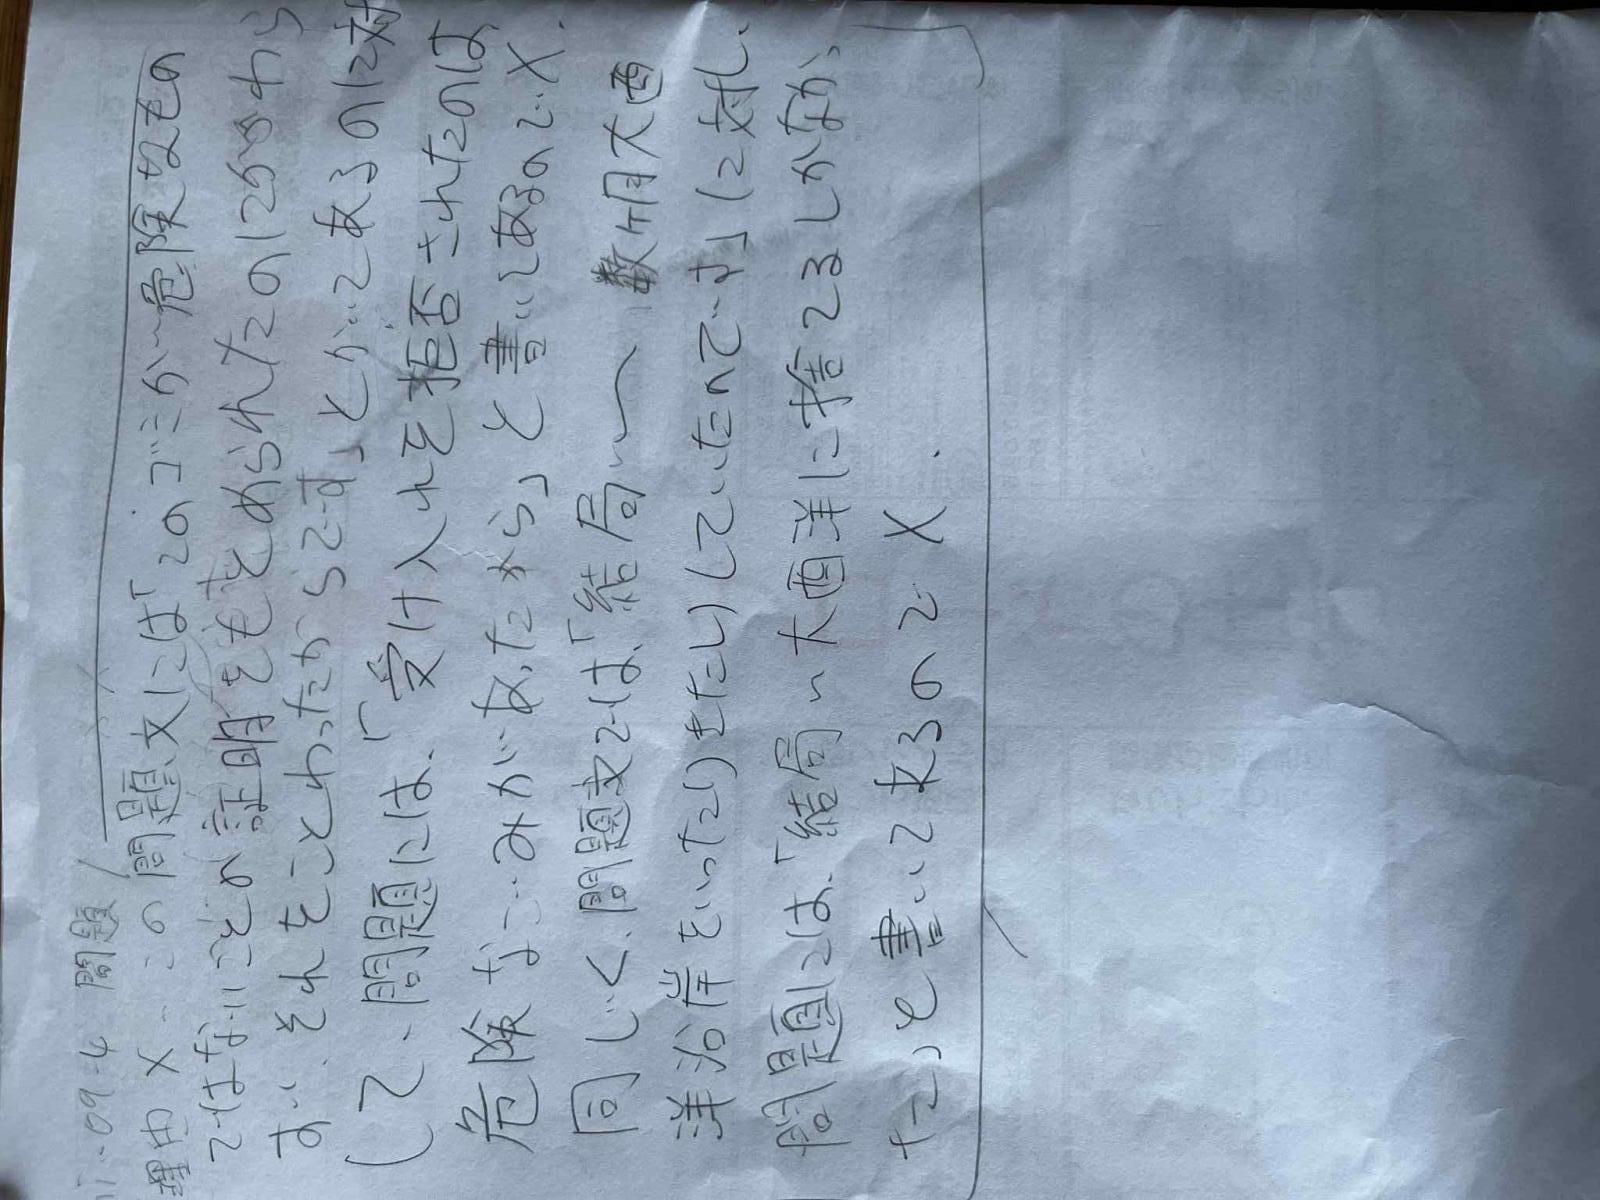 09-4 問題
理由 X - この問題文には「このゴミが危険なもの
ではないことの証明をもとめられたのにかかわら
ず、それをことわったからです」とかいてあるのに対
して、問題には、「受け入れを拒否されたのは
危険なごみがあったから」と書いてあるので X.
同じく、問題文では、「結局〜数ヶ月大西
洋沿岸をいったりきたりしていたんです」に対し、
問題には、「結局、大西洋に捨てるしかなか
った」と書いてあるので X.